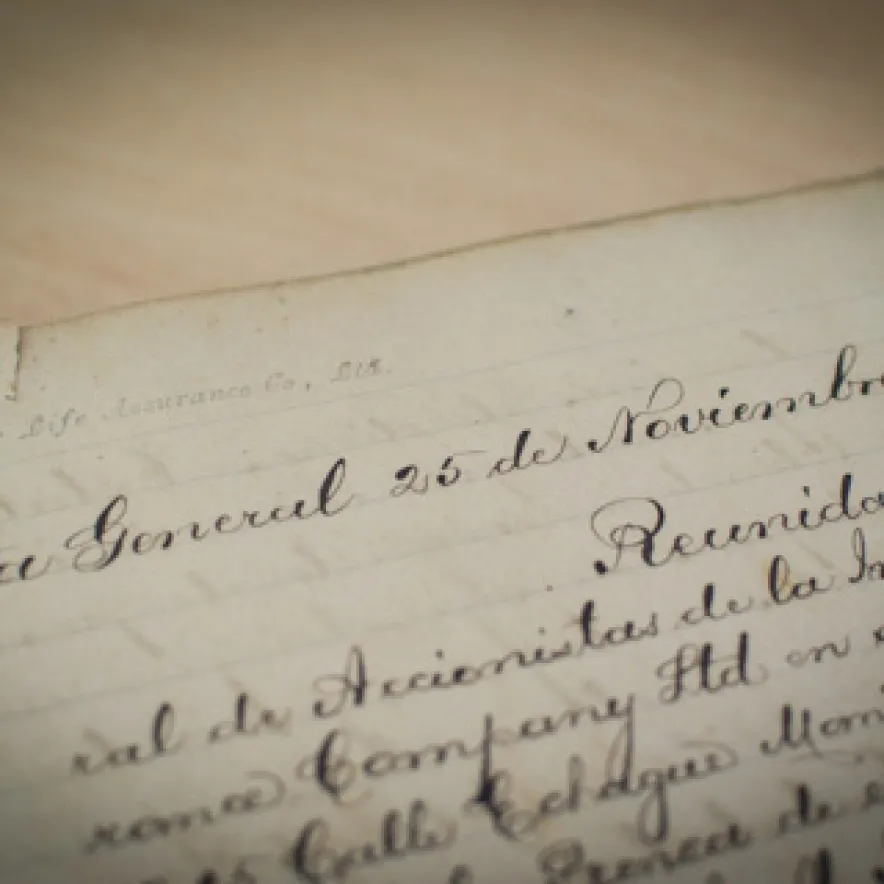 Life Assurance Co, Ltd.
General 25 de Noviembr
Reunida
ral de Accionistas de la In
Company Ltd en
Calle Echague Mani
Prensa de